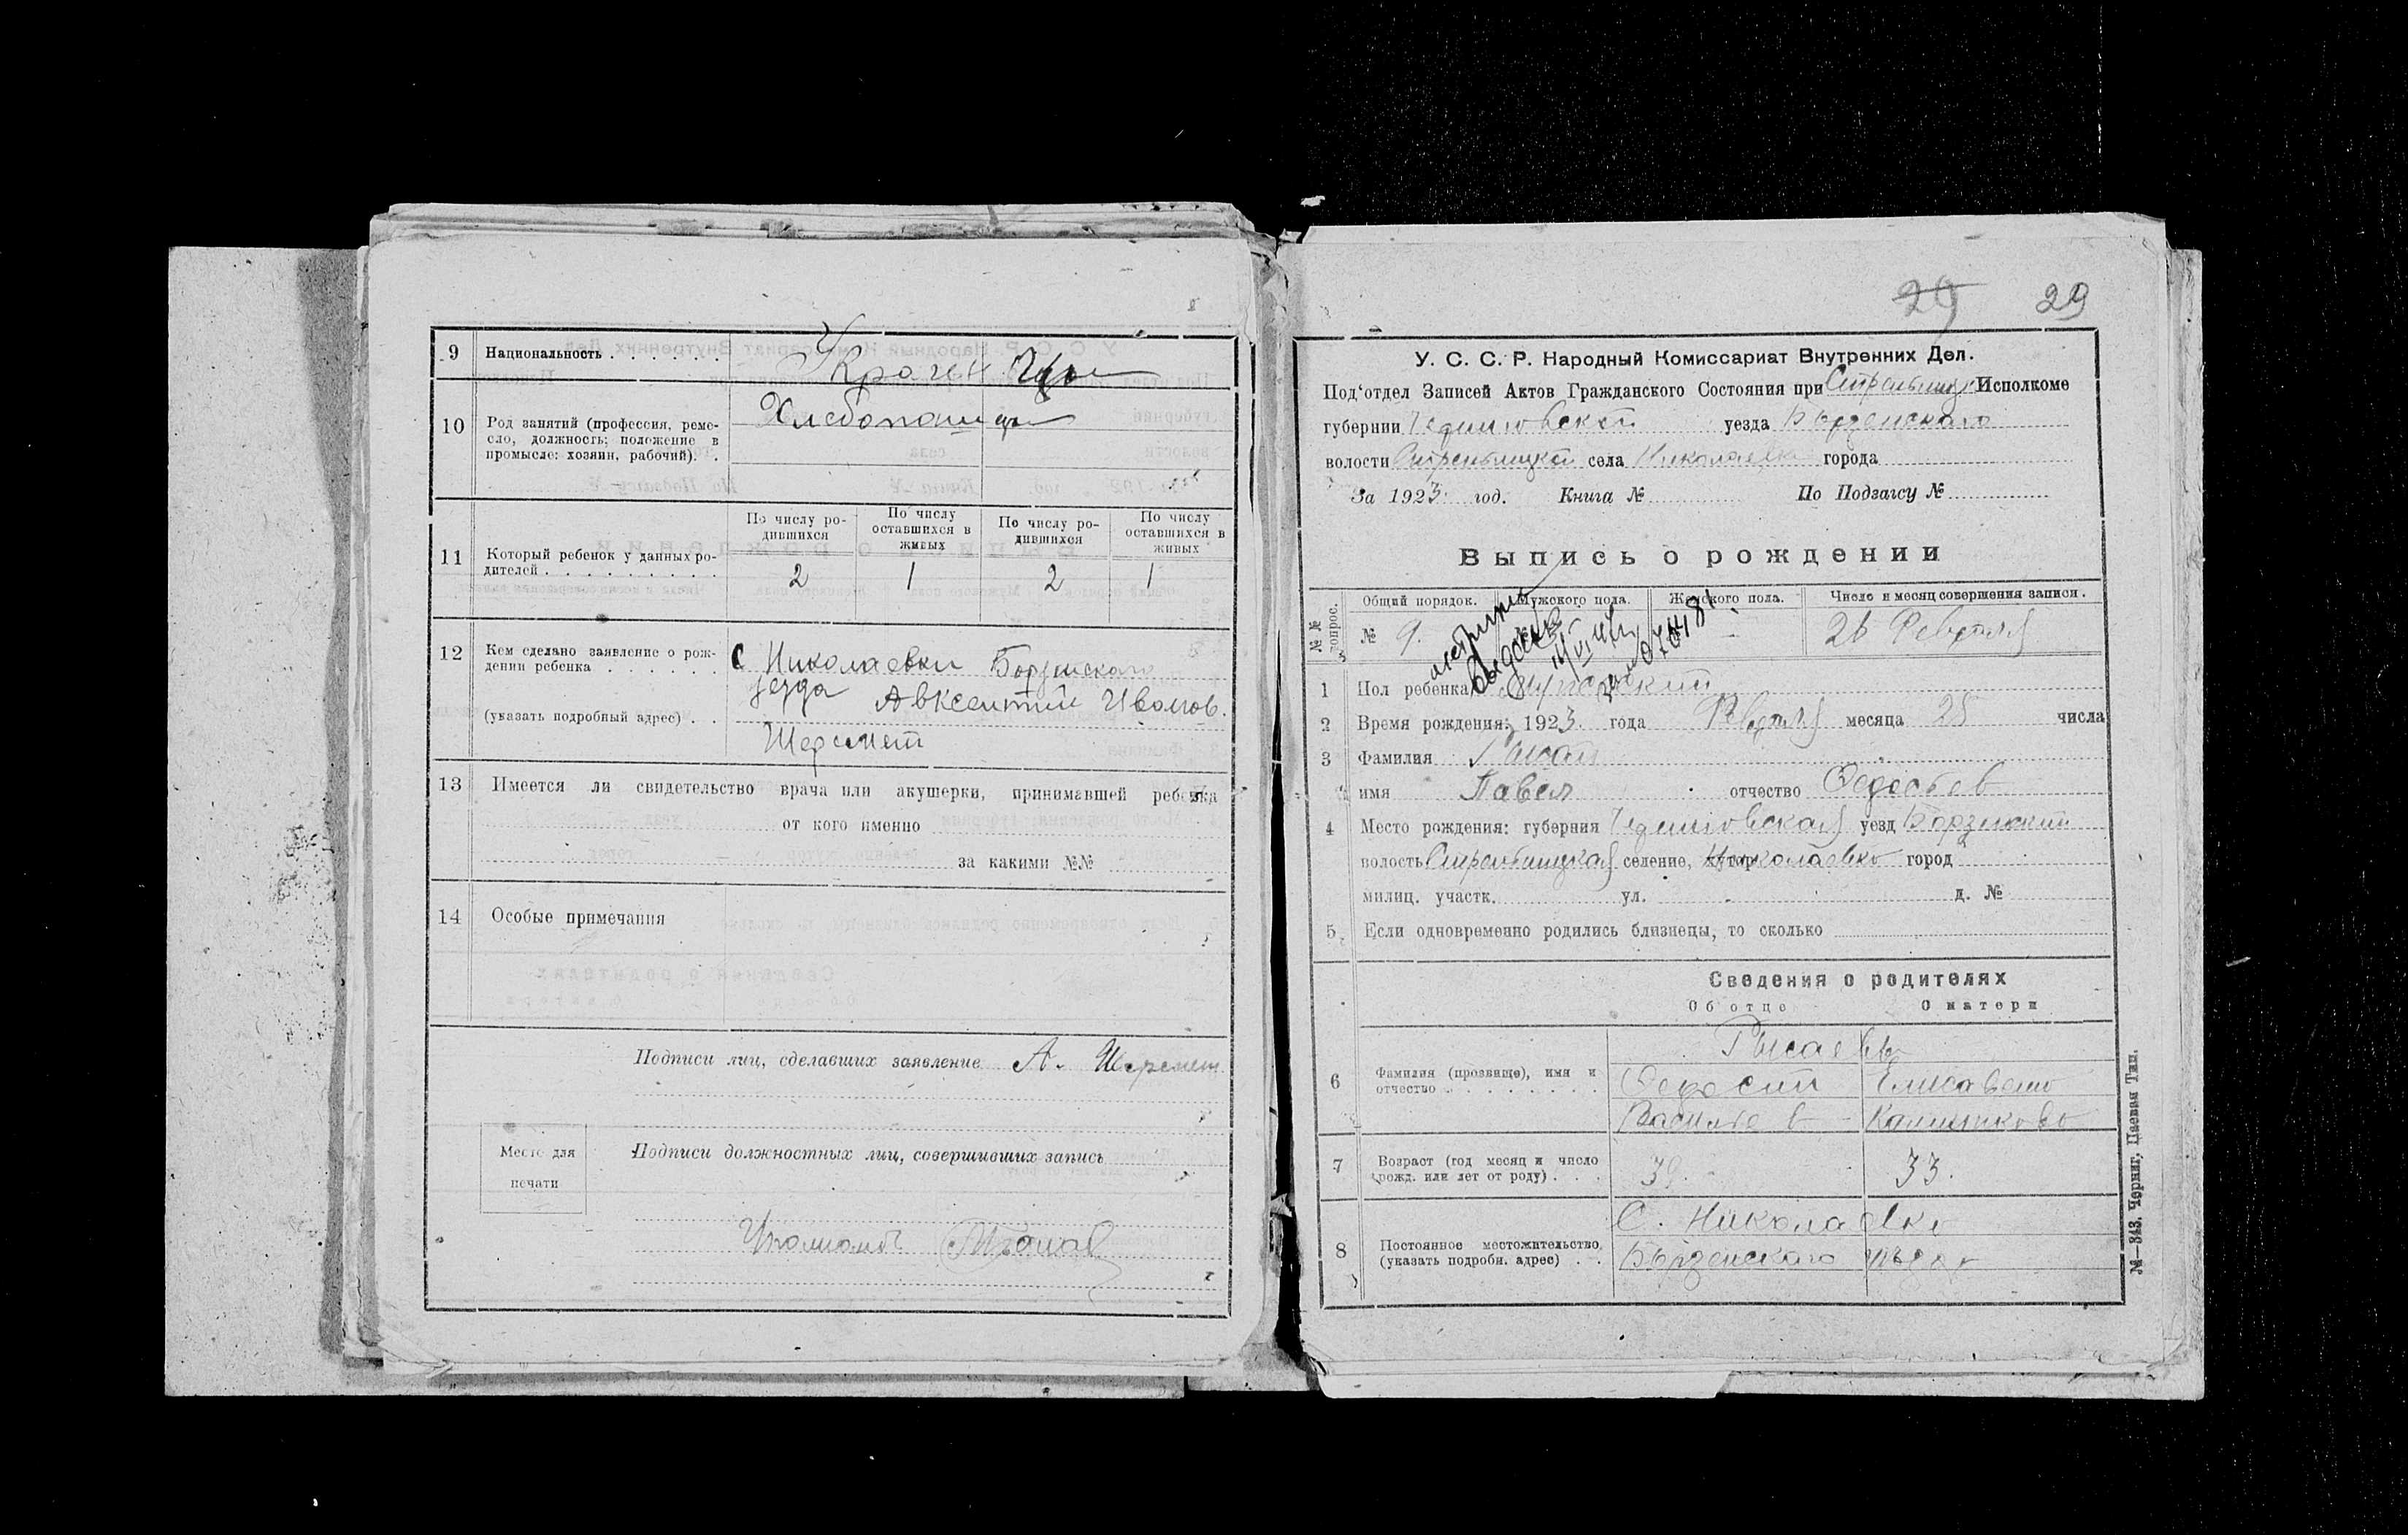 9 Национальность . . . . . .
Украинцы
10 Род занятий (профессия, реме-
сло, должность; положение в
промысле: хозяин, рабочий). .
Хлебопашцы
11 Который ребенок у данных ро-
дителей . . . . . . . . .
По числу ро-
дившихся
По числу
оставшихся в
живых
По числу ро-
дившихся
По числу
оставшихся в
живых
2 1 2 1
12 Кем сделано заявление о рож-
дении ребенка . . . . . .
(указать подробный адрес) . .
С Николаевки Борзенского
уезда Авксентий Иванов.
Шеремет
13 Имеется ли свидетельство врача или акушерки, принимавшей ребенка
от кого именно
за какими №№
14 Особые примечания
Подписи лиц, сделавших заявление А. Шеремет
Место для
печати
Подписи должностных лиц, совершивших запись
29 29
У. С. С. Р. Народный Комиссариат Внутренних Дел.
Под'отдел Записей Актов Гражданского Состояния при Исполкоме
губернии Черниговской уезда Борзенского
волости села Николаевки города
За 1923 год. Книга № По Подзагсу №
Выпись о рождении
№№ вопрос.
Общий порядок. Мужского пола. Женского пола. Число и месяц совершения записи.
№ 9. – 26 Февраля
1 Пол ребенка Мужской
2 Время рождения: 1923 года Февраля месяца 25 числа
3 Фамилия
имя Павел отчество Федосьев
4 Место рождения: губерния Черниговская уезд Борзенский
волость селение, хутор Николаевка город
милиц. участк. ул. д. №
5 Если одновременно родились близнецы, то сколько
Сведения о родителях
Об отце О матери
6 Фамилия (прозвище), имя и
отчество . . . . . . . . .
Федосий Елисавета
Васильев
7 Возраст (год месяц и число
рожд. или лет от роду) . . .
33.
8 Постоянное местожительство
(указать подробн. адрес) . .
С. Николаевка
Борзенского уезда
№—343. Черниг, Цаевая Тип.